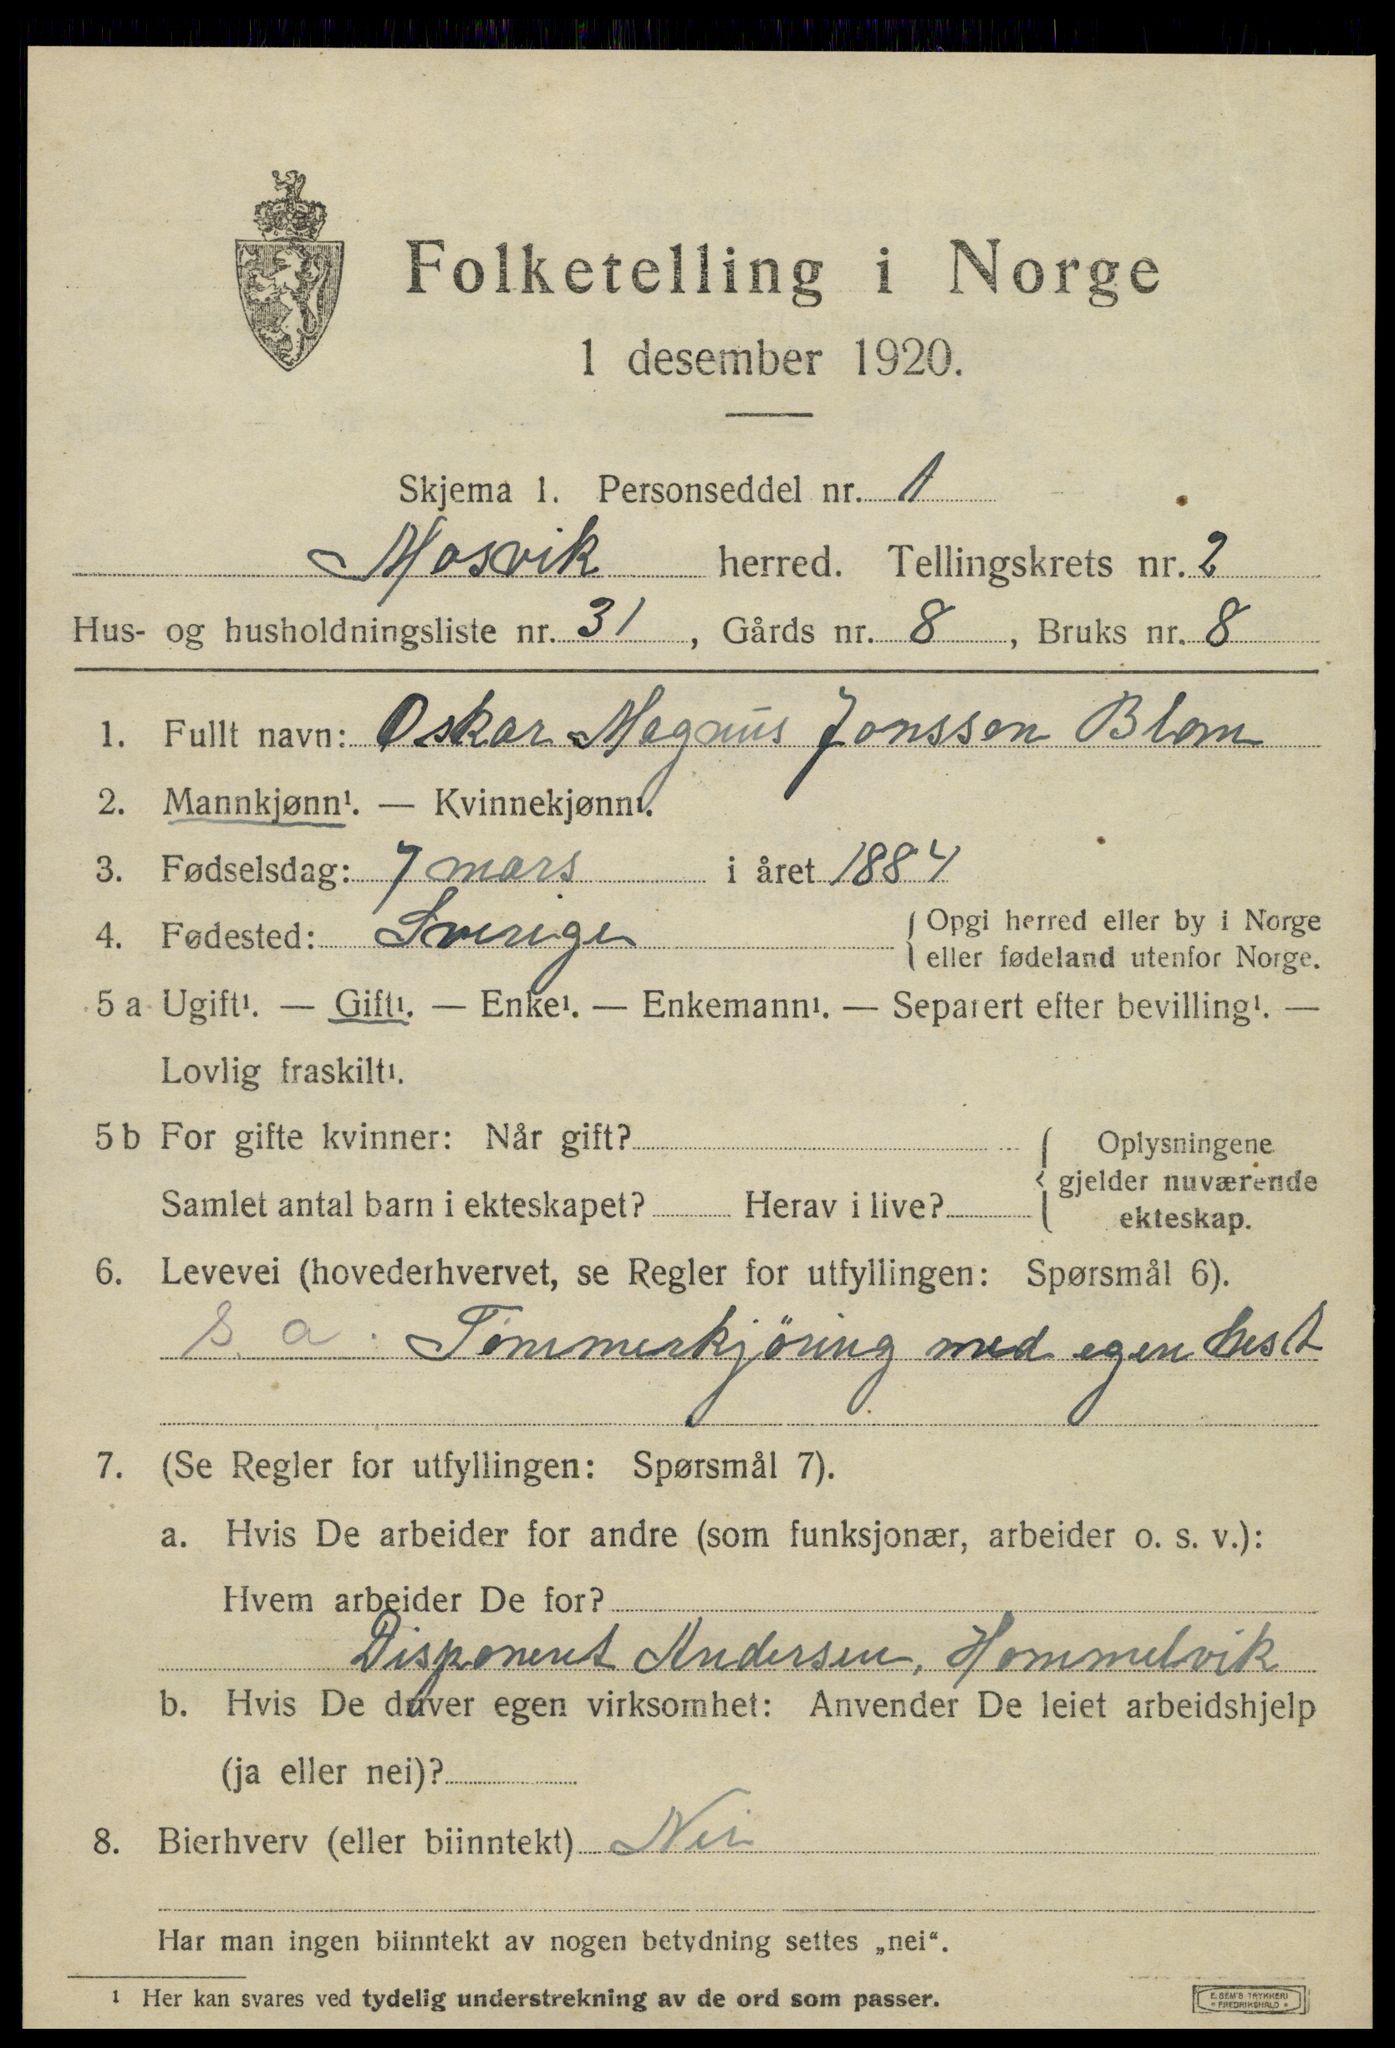 Folketelling i Norge
1 desember 1920.
Skjema 1. Personseddel nr. 1
Mosvik herred. Tellingskrets nr. 2
Hus- og husholdningsliste nr. 31, Gårds nr. 8, Bruks nr. 8
1. Fullt navn: Oskar Magnus Jonsson Blom
2. Mannkjønn¹. — Kvinnekjønn¹.
3. Fødselsdag: 7 mars i året 1884
4. Fødested: Sverige { Opgi herred eller by i Norge
eller fødeland utenfor Norge.
5 a Ugift¹. — Gift¹. — Enke¹. — Enkemann¹. — Separert efter bevilling¹. —
Lovlig fraskilt¹.
5 b For gifte kvinner: Når gift? { Oplysningene
Samlet antal barn i ekteskapet? Herav i live? gjelder nuværende
ekteskap.
6. Levevei (hovederhvervet, se Regler for utfyllingen: Spørsmål 6).
S. a. Tömmerkjöring med egen hest
7. (Se Regler for utfyllingen: Spørsmål 7).
a. Hvis De arbeider for andre (som funksjonær, arbeider o. s. v.):
Hvem arbeider De for?
Disponent Andersen, Hommelvik
b. Hvis De driver egen virksomhet: Anvender De leiet arbeidshjelp
(ja eller nei)?
8. Bierhverv (eller biinntekt) Nei
Har man ingen biinntekt av nogen betydning settes „nei“.
¹ Her kan svares ved tydelig understrekning av de ord som passer.
E. SEM'S TRYKKERI
FREDRIKSHALD